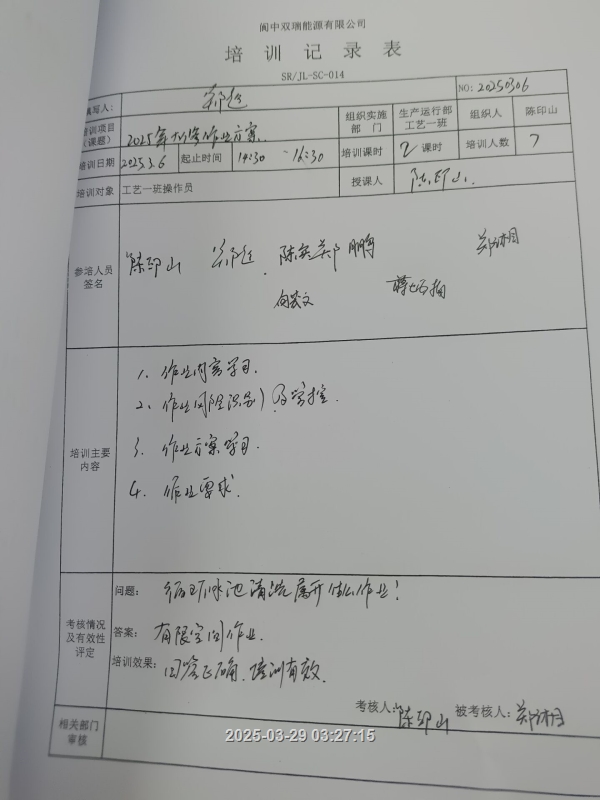 阆中双瑞能源有限公司
培训记录表
SR/JL-SC-014
填写人: 郑 NO: 20250306
培训项目(课题) 2025年大修作业方案. 组织实施部门 生产运行部工艺一班 组织人 陈印山
培训日期 2025.3.6 起止时间 14:30 -16:30 培训课时 2 课时 培训人数 7
培训对象 工艺一班操作员 授课人 陈印山.
参培人员签名 陈印山 郑 陈 郑鹏 郑
培训主要内容
1、作业内容学习.
2、作业风险识别及掌控.
3、作业方案学习.
4、作业要求.
考核情况及有效性评定
问题: 循环水池清洗属于什么作业!
答案: 有限空间作业.
培训效果: 回答正确、培训有效.
考核人: 陈印山 被考核人: 郑
相关部门审核
2025-03-29 03:27:15